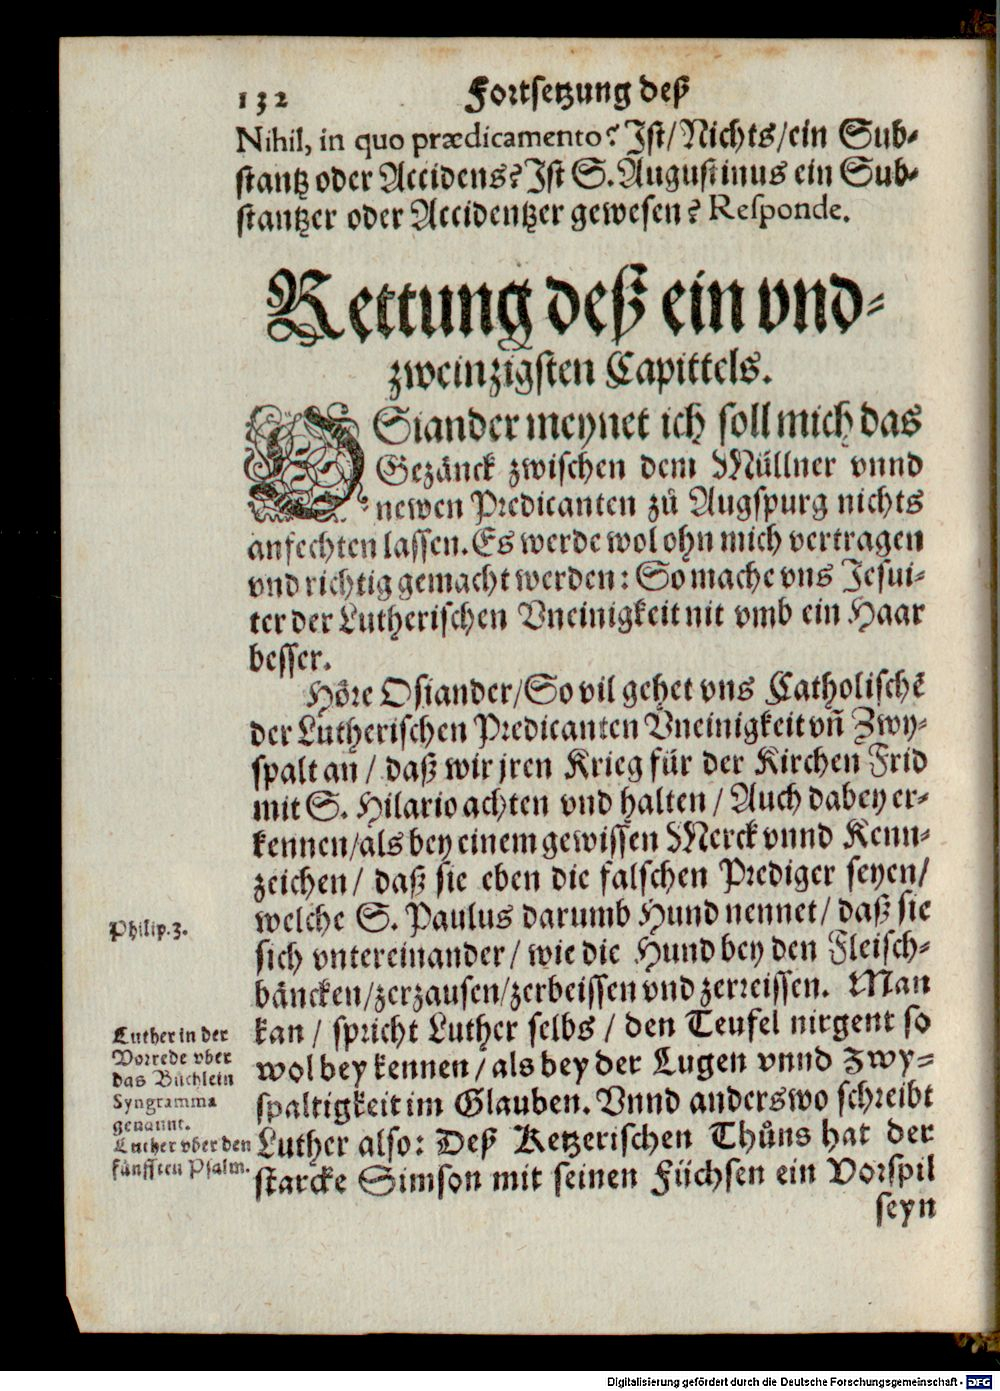 132 Fortsetzung deß
Nihil, in quo prædicamento? Ist/Nichts/ein Sub-
stantz oder Accidens? Ist S. Augustinus ein Sub-
stantzer oder Accidentzer gewesen? Responde.
Rettung deß ein vnd-
zweinzigsten Capittels.
OSiander meynet ich soll mich das
Gezänck zwischen dem Müllner vnnd
newen Predicanten zů Augspurg nichts
anfechten lassen. Es werde wol ohn mich vertragen
vnd richtig gemacht werden: So mache vns Jesui-
ter der Lutherischen Vneinigkeit nit vmb ein Haar
besser.
Höre Osiander/So vil gehet vns Catholischẽ
der Lutherischen Predicanten Vneinigkeit vñ Zwy-
spalt an / daß wir jren Krieg für der Kirchen Frid
mit S. Hilario achten vnd halten / Auch dabey er-
kennen/als bey einem gewissen Merck vnnd Kenn-
zeichen / daß sie eben die falschen Prediger seyen/
welche S. Paulus darumb Hund nennet/ daß sie
Philip. 3.
sich vntereinander/ wie die Hund bey den Fleisch-
bäncken/zerzausen/zerbeissen vnd zerreissen. Man
kan / spricht Luther selbs / den Teufel nirgent so
wol bey kennen / als bey der Lugen vnnd Zwy-
spaltigkeit im Glauben. Vnnd anderswo schreibt
Luther in der
Vorrede vber
das Büchlein
Syngramma
genannt.
Luther also: Deß Ketzerischen Thůns hat der
starcke Simson mit seinen Füchsen ein Vorspil
Luther vber den
fünfften Psalm.
seyn
Digitalisierung gefördert durch die Deutsche Forschungsgemeinschaft - DFG